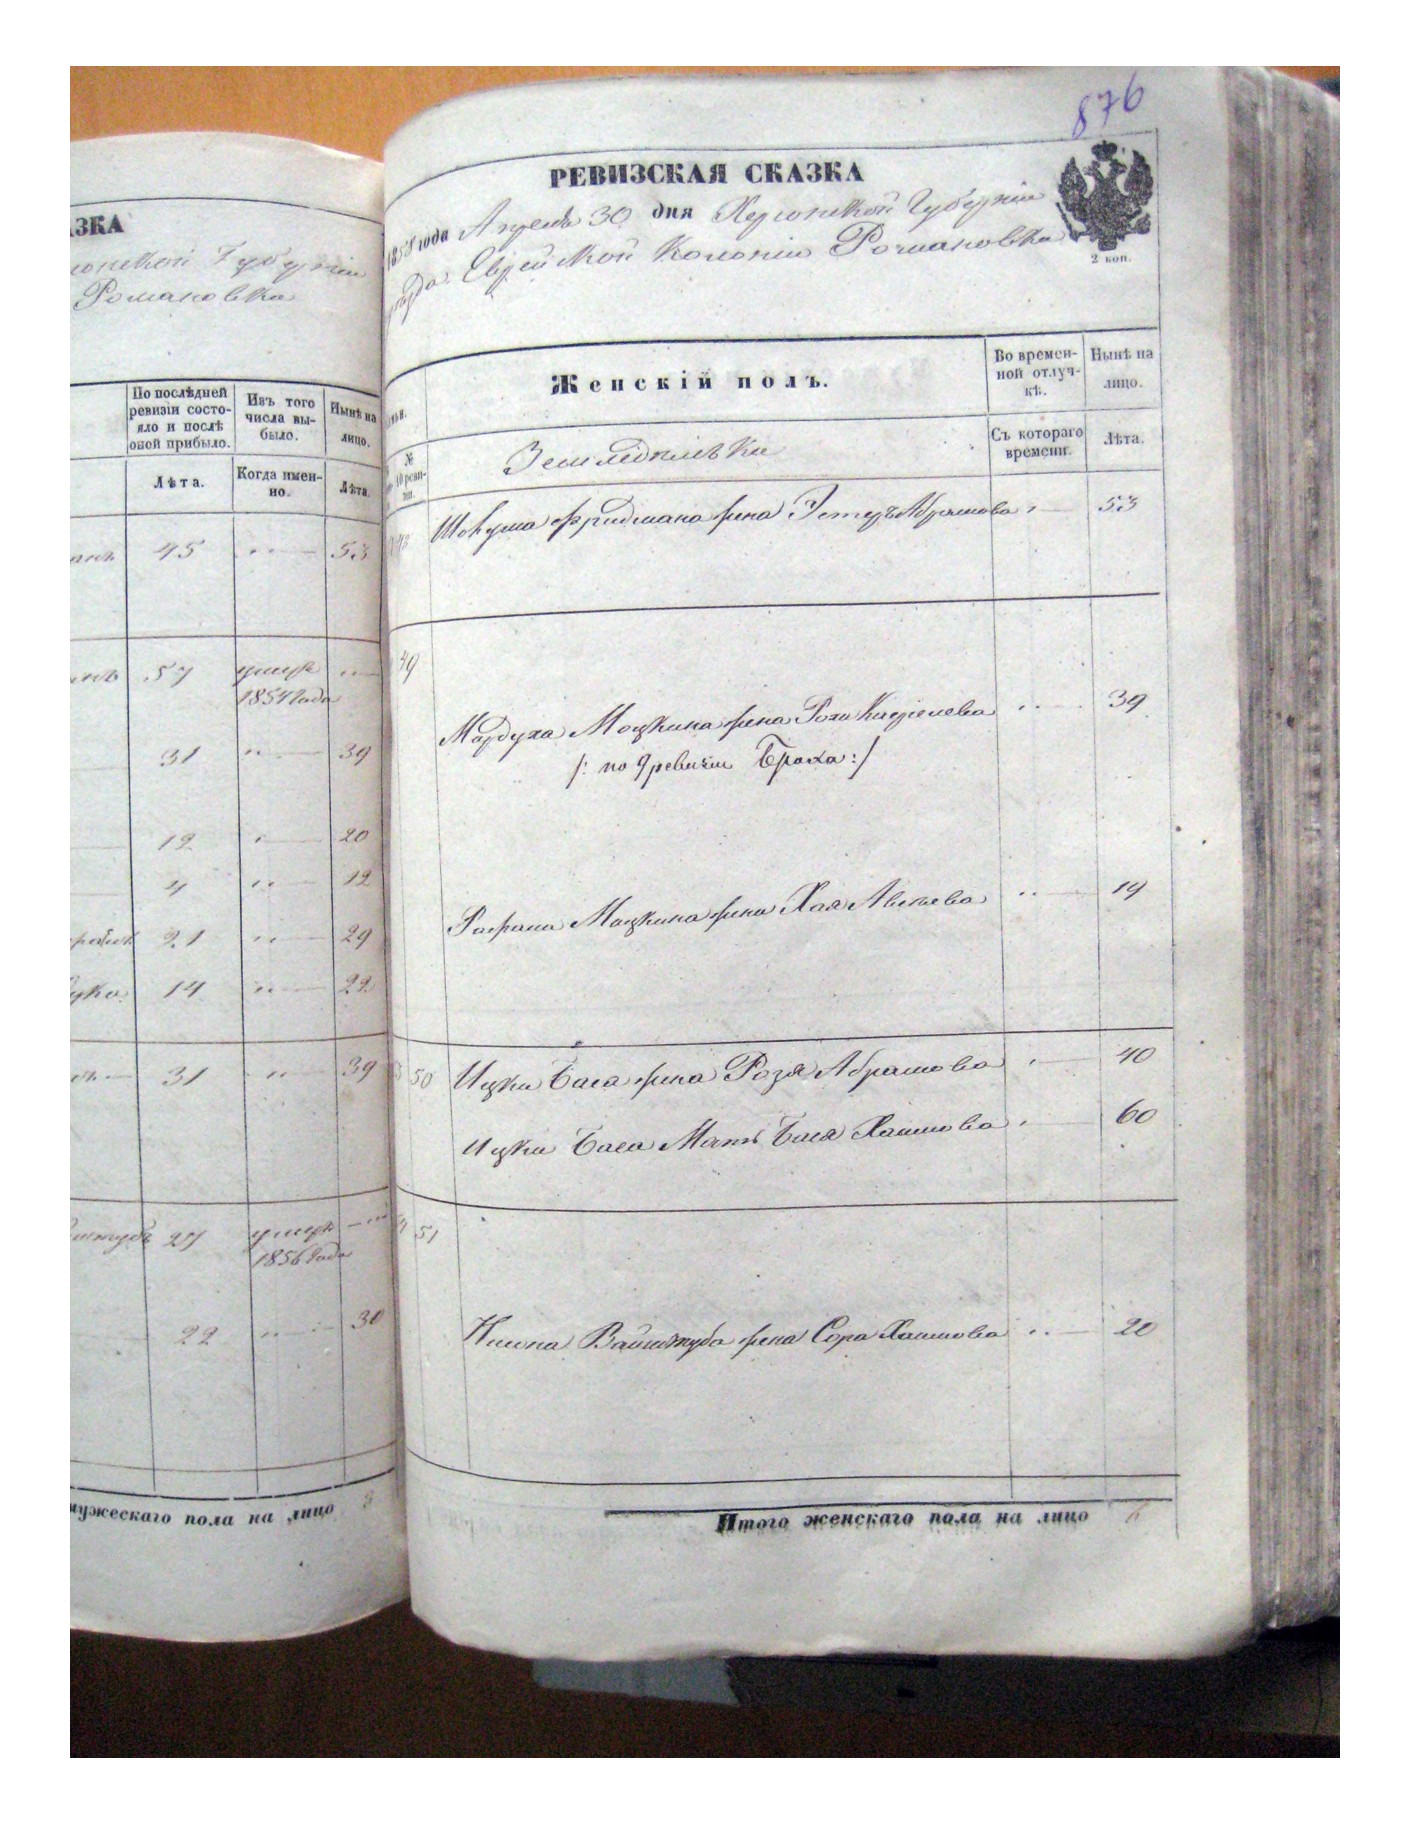 876
ЗКА
Губерніи
Романовка
По послѣдней ревизіи состояло и послѣ оной прибыло.
Изъ того числа выбыло.
Нынѣ на лицо.
Лѣта.
Когда именно.
Лѣта.
45 53
57 умеръ
1854 года
31 39
12 20
4 12
21 29
14 22
31 39
27 умеръ
1856 года
22 30
мужескаго пола на лицо
РЕВИЗСКАЯ СКАЗКА
1858 года Апреля 30 дня Херсонской Губерніи
Еврейской Колоніи Романовка
2 коп.
Женскій полъ.
Во временной отлучкѣ.
Нынѣ на лицо.
№
Съ котораго времени.
Лѣта.
Фридмана жена Абрамова 53
49
Мордуха Моцкина жена 39
/: по 9 ревизіи Броха :/
Моцкина жена Хая 19
50 Ицки Баса жена Розя Абрамова 40
Ицки Баса Мать Бася Хаимова 60
51
Вайнштуба жена Сора Хаимова 20
Итого женскаго пола на лицо 6